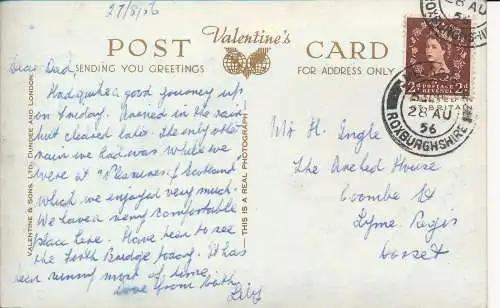 27/8/56
POST Valentine's CARD
SENDING YOU GREETINGS
FOR ADDRESS ONLY
Dear Dad
Had quite a good journey up
on Sunday. Arrived in the rain
but cleared later. The only other
rain we had was while we
were at "Pleasures of Scotland"
which we enjoyed very much.
We have a very comfortable
place here. Have been to see
the Forth Bridge today. It has
been sunny most of time,
Love from both
Lily
VALENTINE & SONS, LTD., DUNDEE AND LONDON
THIS IS A REAL PHOTOGRAPH
Mr H. Ingle
The Arched House
Coombe St
Lyme Regis
Dorset
28 AU
56
ROXBURGHSHIRE
28 AU
56
ROXBURGHSHIRE
2d POSTAGE REVENUE 2d